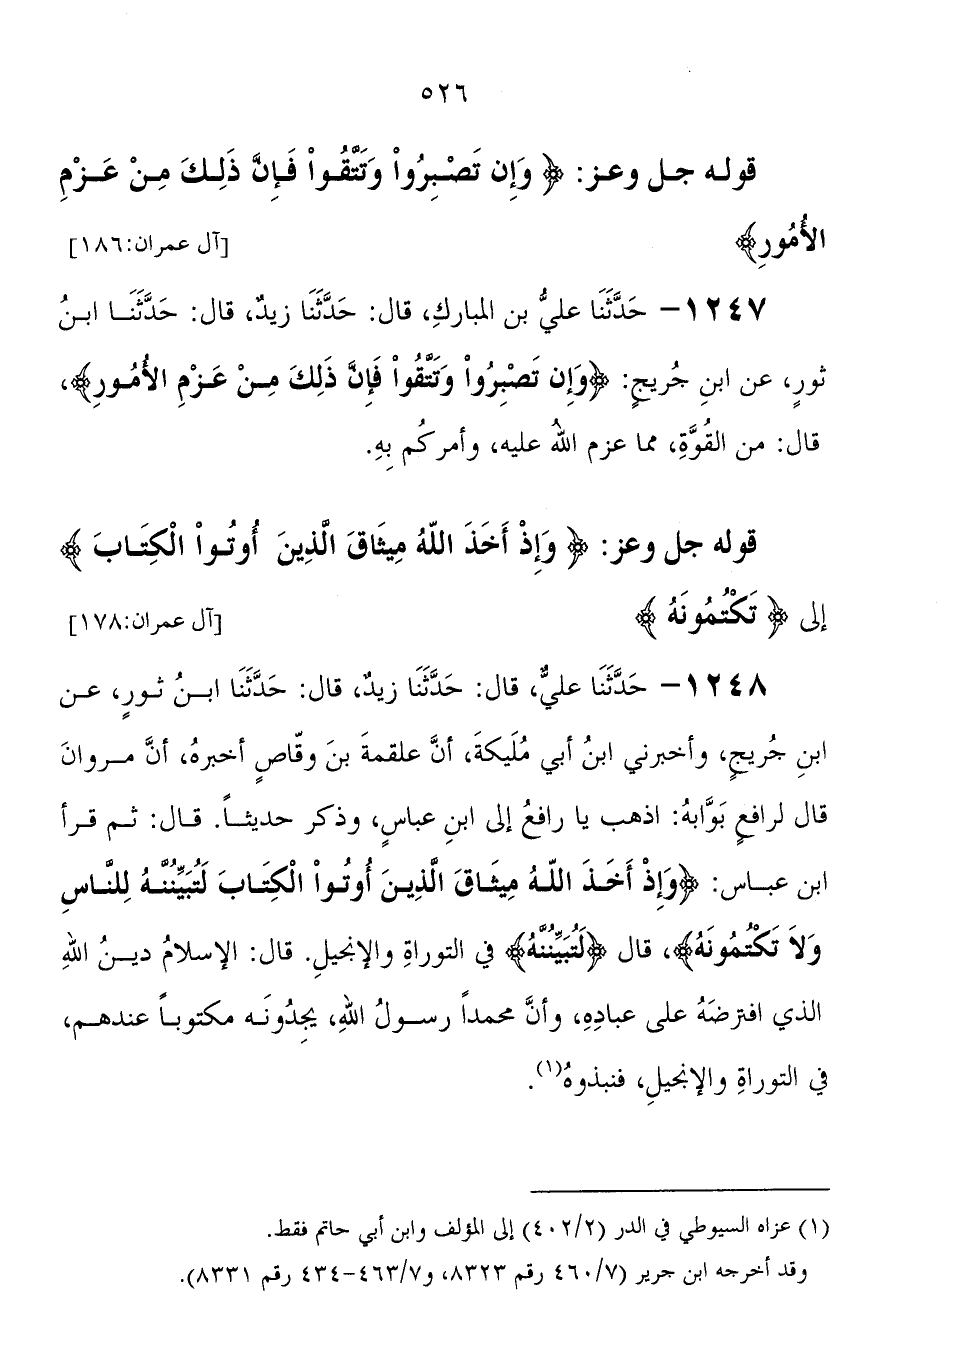 ٥٢٦
قوله جل وعز: ﴿ وَإِن تَصْبِرُواْ وَتَتَّقُواْ فَإِنَّ ذَلِكَ مِنْ عَزْمِ
الأُمُورِ﴾ [آل عمران:١٨٦]
١٢٤٧– حَدَّثَنَا عليُّ بن المباركِ، قال: حَدَّثَنَا زيدٌ، قال: حَدَّثَنَا ابنُ
ثورٍ، عن ابنِ جُريجٍ: ﴿وَإِن تَصْبِرُواْ وَتَتَّقُواْ فَإِنَّ ذَلِكَ مِنْ عَزْمِ الأُمُورِ﴾،
قال: من القُوَّةِ، مما عزم اللهُ عليه، وأمركُم بِهِ.
قوله جل وعز: ﴿ وَإِذْ أَخَذَ اللّهُ مِيثَاقَ الَّذِينَ أُوتُواْ الْكِتَابَ ﴾
إلى ﴿ تَكْتُمُونَهُ ﴾ [آل عمران:١٧٨]
١٢٤٨– حَدَّثَنَا عليٌّ، قال: حَدَّثَنَا زيدٌ، قال: حَدَّثَنَا ابنُ ثورٍ، عن
ابنِ جُريجٍ، وأخبرني ابنُ أبي مُلَيكةَ، أنَّ علقمةَ بنَ وقّاصٍ أخبرهُ، أنَّ مروانَ
قال لرافعٍ بَوَّابهُ: اذهب يا رافعُ إلى ابنِ عباسٍ، وذكر حديثاً. قال: ثم قرأ
ابن عباس: ﴿وَإِذْ أَخَذَ اللّهُ مِيثَاقَ الَّذِينَ أُوتُواْ الْكِتَابَ لَتُبَيِّنُنَّهُ لِلنَّاسِ
وَلاَ تَكْتُمُونَهُ﴾، قال ﴿لَتُبَيِّنُنَّهُ﴾ في التوراةِ والإنجيلِ. قال: الإسلامُ دينُ اللهِ
الذي افترضَهُ على عبادِهِ، وأنَّ محمداً رسولُ اللهِ، يجِدُونَه مكتوباً عندهم،
في التوراةِ والإنجيلِ، فنبذوهُ(١).
(١) عزاه السيوطي في الدر (٤٠٢/٢) إلى المؤلف وابن أبي حاتم فقط.
وقد أخرجه ابن جرير (٤٦٠/٧ رقم ٨٣٢٣، و٤٦٣/٧–٤٣٤ رقم ٨٣٣١).